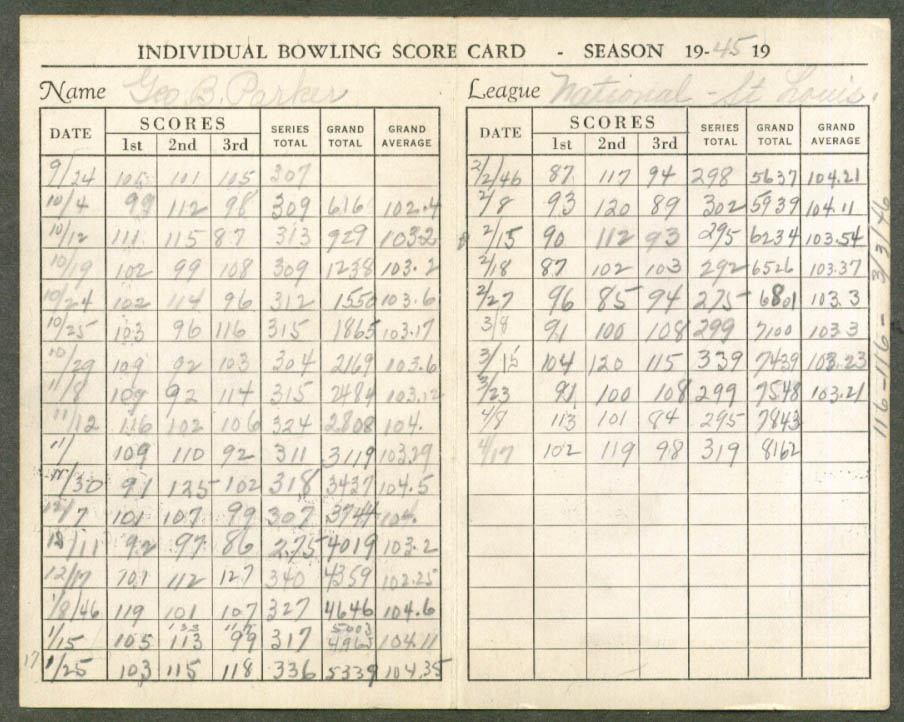 INDIVIDUAL BOWLING SCORE CARD - SEASON 19-45 19
Name Geo B. Parker League National - St Louis.
DATE SCORES SERIES TOTAL GRAND TOTAL GRAND AVERAGE
1st 2nd 3rd
9/24 101 105 307
10/4 99 112 98 309 616 102.4
10/12 111 115 87 313 929 103.2
10/19 102 99 108 309 1238 103.2
10/24 102 114 96 312 1550 103.6
10/25 103 96 116 315 1865 103.17
10/29 109 92 103 304 2169 103.6
11/8 109 92 114 315 2484 103.12
11/12 116 102 106 324 2808 104.
11/ 109 110 92 311 3119 103.29
11/30 91 125 102 318 3437 104.5
12/7 101 107 99 307 3744 104.
12/11 92 97 86 275 4019 103.2
12/17 101 112 127 340 4359 102.25
1/8/46 119 101 107 327 4646 104.6
1/15 105 113 99 317 5003 4963 104.11
17 1/25 103 115 118 336 5339 104.35
DATE SCORES SERIES TOTAL GRAND TOTAL GRAND AVERAGE
1st 2nd 3rd
2/2/46 87 117 94 298 5637 104.21
2/8 93 120 89 302 5939 104.11
2/15 90 112 93 295 6234 103.54
2/18 87 102 103 292 6526 103.37
2/27 96 85 94 275 6801 103.3
3/8 91 100 108 299 7100 103.3
3/15 104 120 115 339 7439 103.23
3/23 91 100 108 299 7548 103.21
4/8 113 101 84 295 7843
4/17 102 119 98 319 8162
116-116- 3/3/46